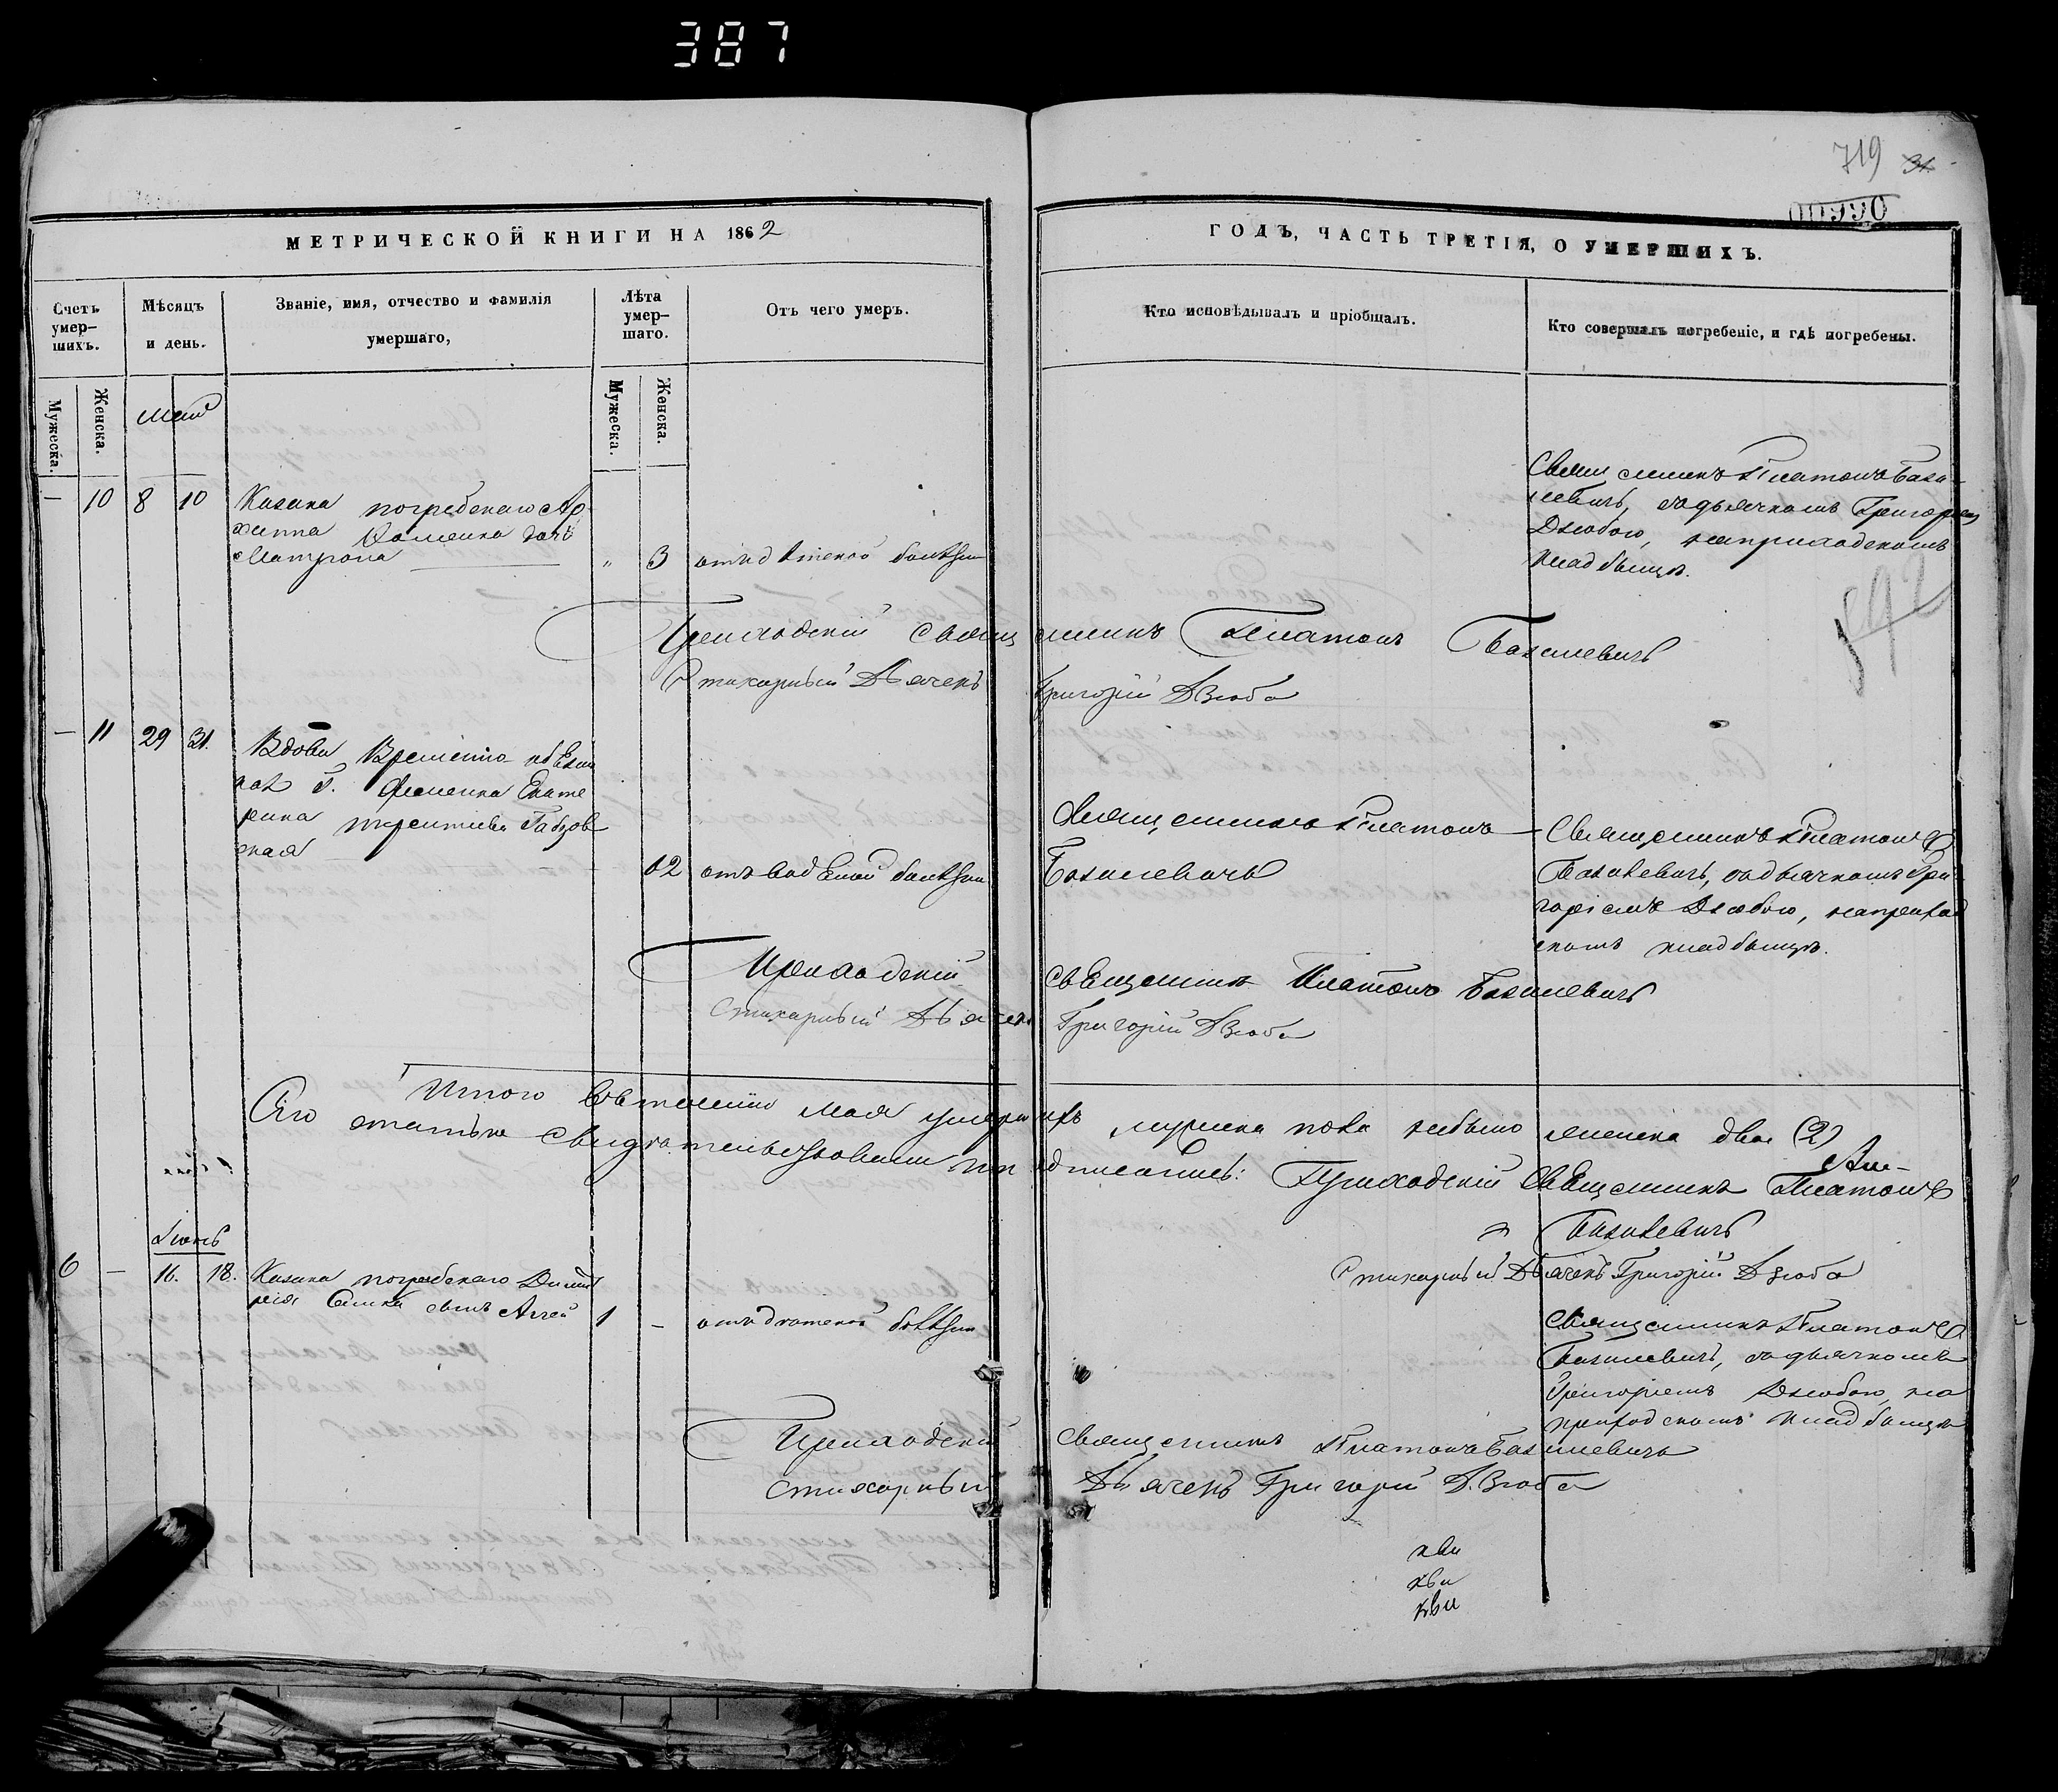 387
719 31
00990
МЕТРИЧЕСКОЙ КНИГИ НА 1862
ГОДЪ, ЧАСТЬ ТРЕТІЯ, О УМЕРШИХЪ.
Счетъ умер-
шихъ.
Мѣсяцъ
и день.
Званіе, имя, отчество и фамилія
умершаго,
Лѣта
умер-
шаго.
Отъ чего умеръ.
Кто исповѣдывалъ и пріобщалъ.
Кто совершалъ погребеніе, и гдѣ погребены.
Мужеска.
Женска.
Мужеска.
Женска.
Май
— 10 8 10 Казака погребскаго Ар
хиппа дочь
Матрона „ 3 отъ дѣтской болѣзни
Священникъ Платонъ Бази-
левичъ, съ дьячкомъ Григоріем
Дзюбою, на приходскомъ
кладбищѣ.
592
Приходскій Священникъ Платонъ Базилевичъ
Стихарный Дьячекъ Григорій Дзюба
— 11 29 31. Вдова Временно обязан
ная Екате
рина
ская
отъ водяной болѣзни
Священникъ Платонъ
Базилевичъ
Священникъ Платонъ
Базилевичъ, съ дьячкомъ Гри
горіемъ Дзюбою, на приход
скомъ кладбищѣ.
Приходскій Священникъ Платонъ Базилевичъ
Стихарный Дьячекъ Григорій Дзюба
Итого въ теченіи мая умершихъ мужеска пола небыло женска два (2)
Сію статью свидѣтельствовали и подписались: Приходскій Священникъ Платонъ
Базилевичъ
Стихарный Дьячекъ Григорій Дзюба
Іюнь
6 — 16. 18. Казака погребскаго Димит
рія сынъ 1 – отъ дѣтской болѣзни
Священникъ Платонъ
Базилевичъ, съ дьячкомъ
Григоріемъ Дзюбою, на
приходскомъ кладбищѣ
Приходскій Священникъ Платонъ Базилевичъ
Стихарный Дьячекъ Григорій Дзюба